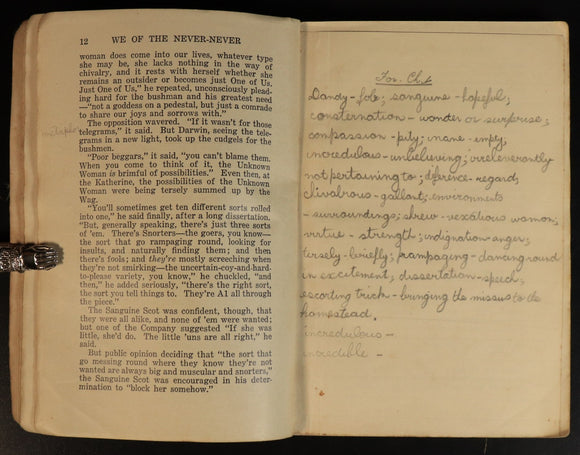 12 WE OF THE NEVER-NEVER
woman does come into our lives, whatever type
she may be, she lacks nothing in the way of
chivalry, and it rests with herself whether she
remains an outsider or becomes just One of Us.
Just One of Us," he repeated, unconsciously plead-
ing hard for the bushman and his greatest need
—"not a goddess on a pedestal, but just a comrade
to share our joys and sorrows with."
The opposition wavered. "If it wasn't for those
telegrams," it said. But Darwin, seeing the tele-
grams in a new light, took up the cudgels for the
bushmen.
"Poor beggars," it said, "you can't blame them.
When you come to think of it, the Unknown
Woman is brimful of possibilities." Even then, at
the Katherine, the possibilities of the Unknown
Woman were being tersely summed up by the
Wag.
"You'll sometimes get ten different sorts rolled
into one," he said finally, after a long dissertation.
"But, generally speaking, there's just three sorts
of 'em. There's Snorters—the goers, you know—
the sort that go rampaging round, looking for
insults, and naturally finding them; and then
there's fools; and they're mostly screeching when
they're not smirking—the uncertain-coy-and-hard-
to-please variety, you know," he chuckled, "and
then," he added seriously, "there's the right sort,
the sort you tell things to. They're A1 all through
the piece."
The Sanguine Scot was confident, though, that
they were all alike, and none of 'em were wanted;
but one of the Company suggested "If she was
little, she'd do. The little 'uns are all right," he
said.
But public opinion deciding that "the sort that
go messing round where they know they're not
wanted are always big and muscular and snorters,"
the Sanguine Scot was encouraged in his deter-
mination to "block her somehow."
For. Ch. 1
Dandy - fob; sanguine - hopeful;
consternation - wonder or surprise;
compassion - pity; inane - empty;
incredulous - unbelieving; irreleverantly
not pertaining to; deference - regard;
chivalrous - gallant; environments
- surroundings; shrew - vexatious woman;
virtue - strength; indignation - anger;
tersely - briefly; rampaging - dancing round
in excitement; dissertation - speech;
escorting trick - bringing the missus to the
homestead.
incredulous -
incredible -